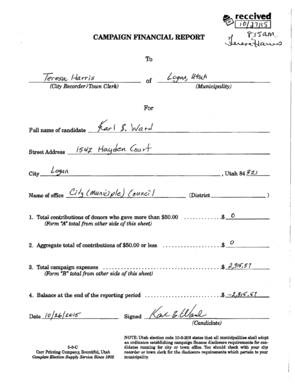 received
10/27/15
8:15am
Teresa Harris
CAMPAIGN FINANCIAL REPORT
To
Teresa Harris of Logan, Utah
(City Recorder/Town Clerk) (Municipality)
For
Full name of candidate Karl S. Ward
Street Address 1542 Hayden Court
City Logan , Utah 84321
Name of office City (Municiple) Council (District )
1. Total contributions of donors who gave more than $50.00 $ 0
(Form "A" total from other side of this sheet)
2. Aggregate total of contributions of $50.00 or less $ 0
3. Total campaign expenses $ 2,815.57
(Form "B" total from other side of this sheet)
4. Balance at the end of the reporting period $ -2,815.57
Date 10/26/2015 Signed Karl S Ward
(Candidate)
5-9-C
Carr Printing Company, Bountiful, Utah
Complete Election Supply Service Since 1902
NOTE: Utah election code 10-3-208 states that all municipalities shall adopt
an ordinance establishing campaign finance disclosure requirements for can-
didates running for city or town office. You should check with your city
recorder or town clerk for the disclosure requirements which pertain to your
municipality.